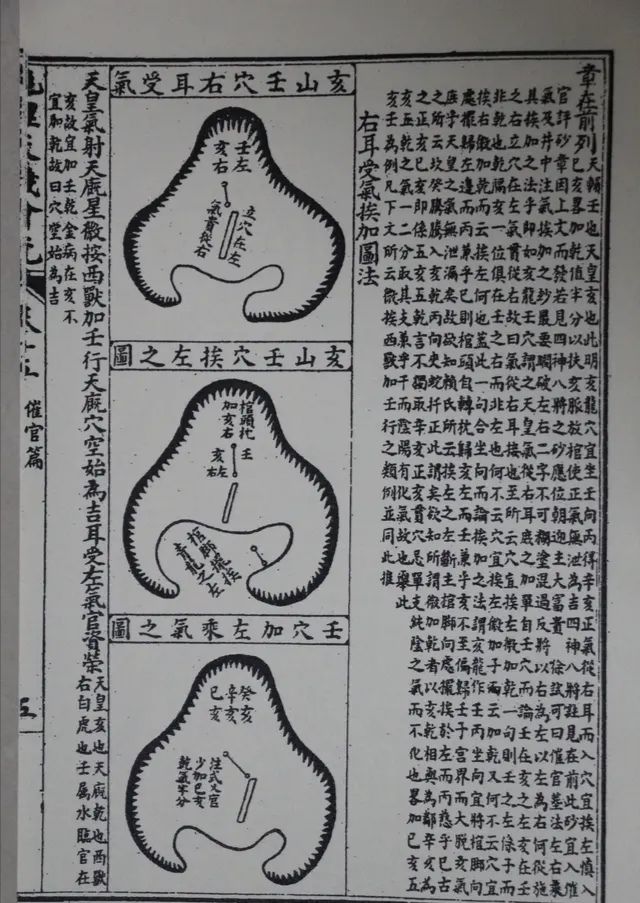 章在前列
天輔壬也天皇亥也此明亥龍穴宜坐壬向丙得辛亥正氣從右耳而入穴宜挨左慎入
已亥畧加乾值半分以扶亥脈放棺使正氣無泄為吉四神八將註見在前此砂宜入催
官評砂章因上文而發若見四神八將之砂應位朝迎主大富貴徐試可曰催官墓法左右乘
氣及井中注氣挨加之妙最要明破左右二字不可糊塗混過反將以右為左以左為右何從施
具挨加之法乎即如亥龍壬穴謂之天皇氣從右耳加單自壬穴而論壬在亥左亥在壬
之右立穴在左氣貫從右故曰氣從右耳接也至所云穴宜挨左微加乾一句則壬之左係子而
非乾亥一位俱在壬之右而非左也何不云穴宜挨左微加子而云加乾又何不云穴宜
挨右微加乾而云挨左何也蓋此一句合坐向而論挨加之法謂亥龍作壬丙坐向宜將棺脚向
處擺歸左邊而丙兼乎巳則棺頭自轉枕歸亥左而壬兼乎亥不至偏歸壬子宮界而大脫亥氣
庶乎天皇之氣無泄漏矣故欲知賴氏所云挨左之左斷主棺脚向處擺挨於左而丙乎巳古
之所云坎癸騰騰入亥乾丙向更蛇扦正此謂矣欲知所謂微加乾者以亥乾相與為鄰辛亥為
之正亥巳亥即係五亥乾言不獨取辛亥正亥貫穴忌單支純陰之氣而不化也畧加已亥五
亥五乾之氣一二分取其支兼乎干而陰陽有化氣故也舉此
亥壬為例凡下文所云微挨西獸加壬行之類例並同此推
右耳受氣挨加圖法
亥山壬穴右耳受氣
壬左
亥右
立穴在左
氣貫從右
亥山壬穴挨左之圖
棺頭枕
加亥右
壬左
亥右
棺脚擺挨
青龍之左
壬穴加左乘氣之圖
癸亥
辛亥
已亥
注式又官
少加已亥
乾氣半分
天皇氣射天廐星微挨西獸加壬行天廐穴空始為吉耳受左氣官資榮
天皇亥也天廐乾也西獸
右白虎也壬屬水臨官在
亥故宜加壬乾金病在亥不
宜加乾故曰穴空始為吉
催官篇
五